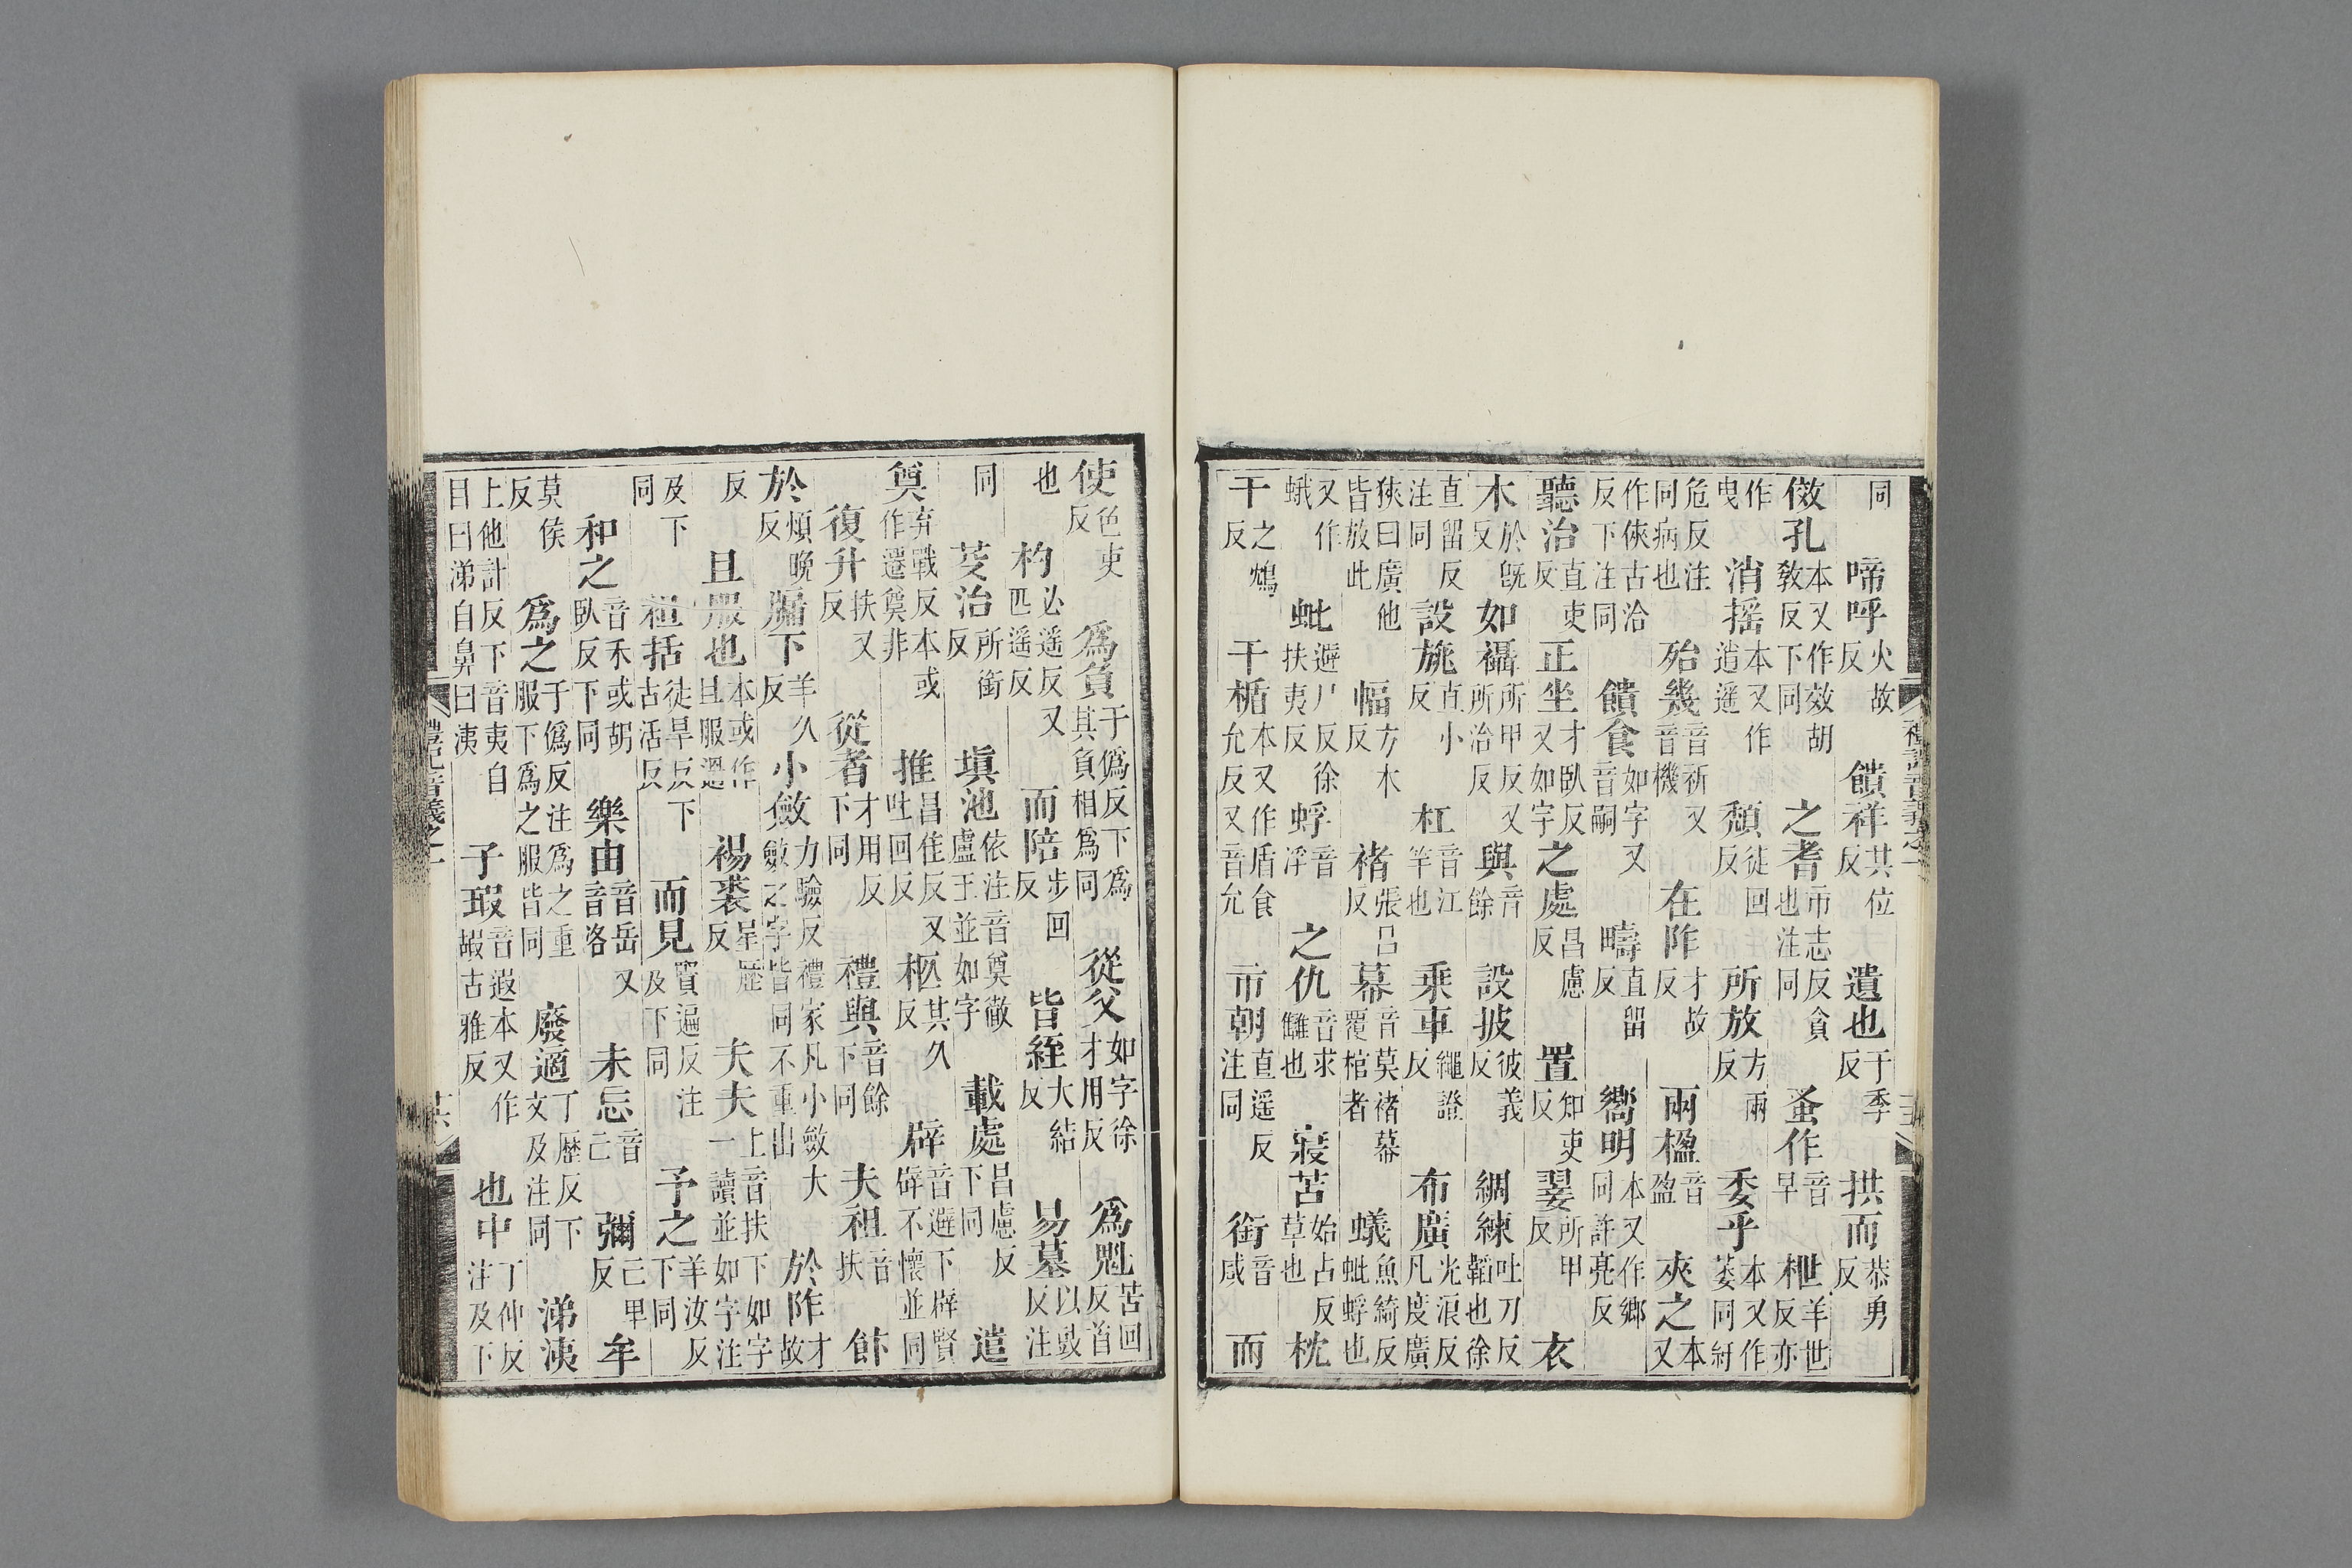 同 啼呼火故反 饋祥其位反 遺也于季反 拱而恭勇反
傚孔本又作效胡教反下同 之耆市志反貪也注同 蚤作音早 枻羊世反亦
作曳 消摇本又作逍遥 頽徒回反 所放方兩反 委乎本又作萎同紆
危反注同病也 殆幾音祈又音機 在阼才故反 兩楹音盈 夾之本又
作俠古洽反下注同 饋食如字又音嗣 疇直留反 嚮明本又作鄉同許亮反
聽治直吏反 正坐才臥反又如字 之處昌慮反 置知吏反 翣所甲反 衣
木於旣反 如襵所甲反又所治反 與音餘 設披彼義反 綢練吐刀反韜也徐
直留反注同 設旐直小反 杠音江竿也 乘車繩證反 布廣光浪反凡度廣
狹曰廣他皆放此 幅方木反 褚張呂反 幕音莫褚幕覆棺者 蟻魚綺反蚍蜉也
又作蛾 蚍避尸反徐扶夷反 蜉音浮 之仇音求讎也 寢苫始占反草也 枕
干之鴆反 干楯本又作盾食允反又音允 市朝直遥反注同 銜音咸 而
禮記音義之一
使色吏反 爲負于僞反下爲其負相爲同 從父如字徐才用反 爲魁苦回反首
也 杓必遥反又匹遥反 而陪步回反 皆絰大結反 易墓以豉反注
同 芟治所銜反 塡池依注音奠徹盧王並如字 載處昌慮反下同 遣
奠弃戰反本或作遷奠非 推昌佳反又吐回反 柩其久反 辟音避下辟賢辟不懷並同
復升扶又反 從者才用反下同 禮與音餘下同 夫祖音扶 飰
於煩晚反 牖下羊久反 小斂力驗反禮家凡小斂大斂之字皆同不重出 於阼才故
反 且服也本或作且服過 裼裘星歷反 夫夫上音扶下如字一讀並如字注
及下同 袒括徒旱反下古活反 而見賢遍反注及下同 予之羊汝反下同
和之音禾或胡臥反下同 樂由音岳又音洛 未忘音亡 彌亡卑反 牟
莫侯反 爲之于僞反注爲之重服下爲之服皆同 廢適丁歷反下文及注同 涕洟
上他計反下音夷自目曰涕自鼻曰洟 子瑕音遐本又作嘏古雅反 也中丁仲反注及下
禮記音義之一